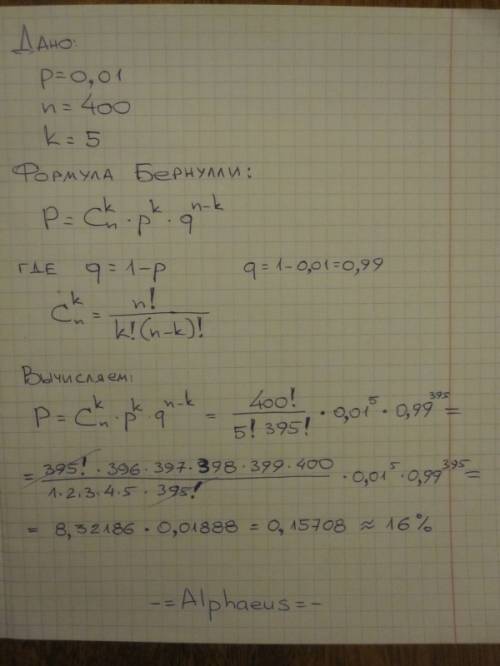 Дано:
p=0,01
n=400
k=5
Формула Бернулли:
P = C_n^k · p^k · q^{n-k}
где q = 1-p q = 1-0,01=0,99
C_n^k = n! / k!(n-k)!
Вычисляем:
P = C_n^k · p^k · q^{n-k} = 400! / 5! 395! · 0,01^5 · 0,99^{395} =
= 395! · 396 · 397 · 398 · 399 · 400 / 1·2·3·4·5 · 395! · 0,01^5 · 0,99^{395} =
= 8,32186 · 0,01888 = 0,15708 ≈ 16%
-=Alphaeus=-